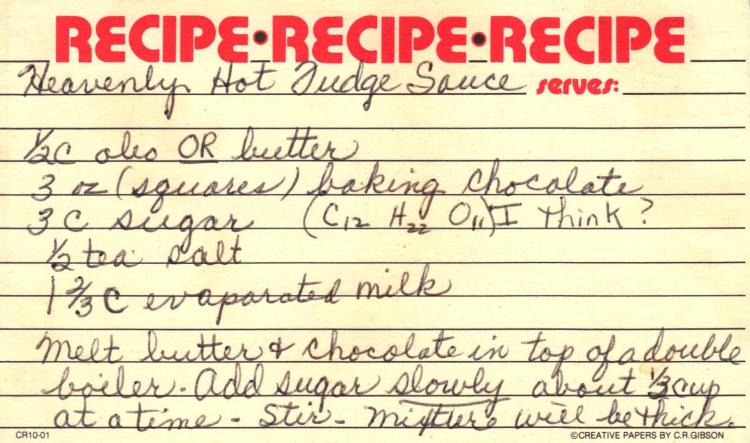 RECIPE•RECIPE•RECIPE
Heavenly Hot Fudge Sauce serves:
½c oleo OR butter
3 oz (squares) baking chocolate
3 C sugar (C12 H22 O11) I think?
½ tea salt
1 ⅔ C evaparated milk
Melt butter & chocolate in top of a double
boiler. Add sugar slowly about ⅓ cup
at a time - Stir - mixture will be thick.
CR10-01 ©CREATIVE PAPERS BY C.R.GIBSON